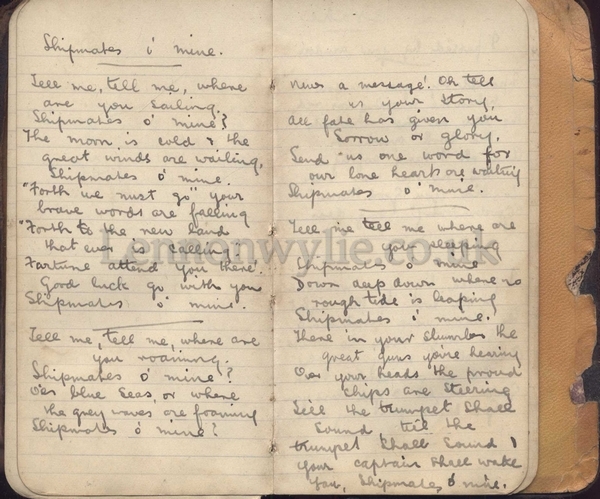 Shipmates o' mine.
Tell me, tell me, where
are you sailing.
Shipmates o' mine?
The moon is cold & the
great winds are wailing,
Shipmates o' mine.
"Forth we must go" your
brave words are falling
"Forth to the new land
that ever is calling"!
Fortune attend you there!
Good luck go with you
Shipmates o' mine.
Tell me, tell me, where are
you roaming.
Shipmates o' mine?
O'er blue seas, or where
the grey waves are foaming
Shipmates o' mine?
News a message! Oh tell
us your story,
All fate has given you
Sorrow or glory,
Send us one word for
our lone hearts are waiting
Shipmates o' mine.
Tell me tell me where are
you sleeping
Shipmates o' mine
Down deep down where no
rough tide is leaping
Shipmates o' mine.
There in your slumber the
great guns you're hearing
Over your heads the proud
ships are steering
Till the trumpet shall
sound till the
trumpet shall sound &
your captain shall wake
you, Shipmates o' mine.
Lennonwylie.co.uk